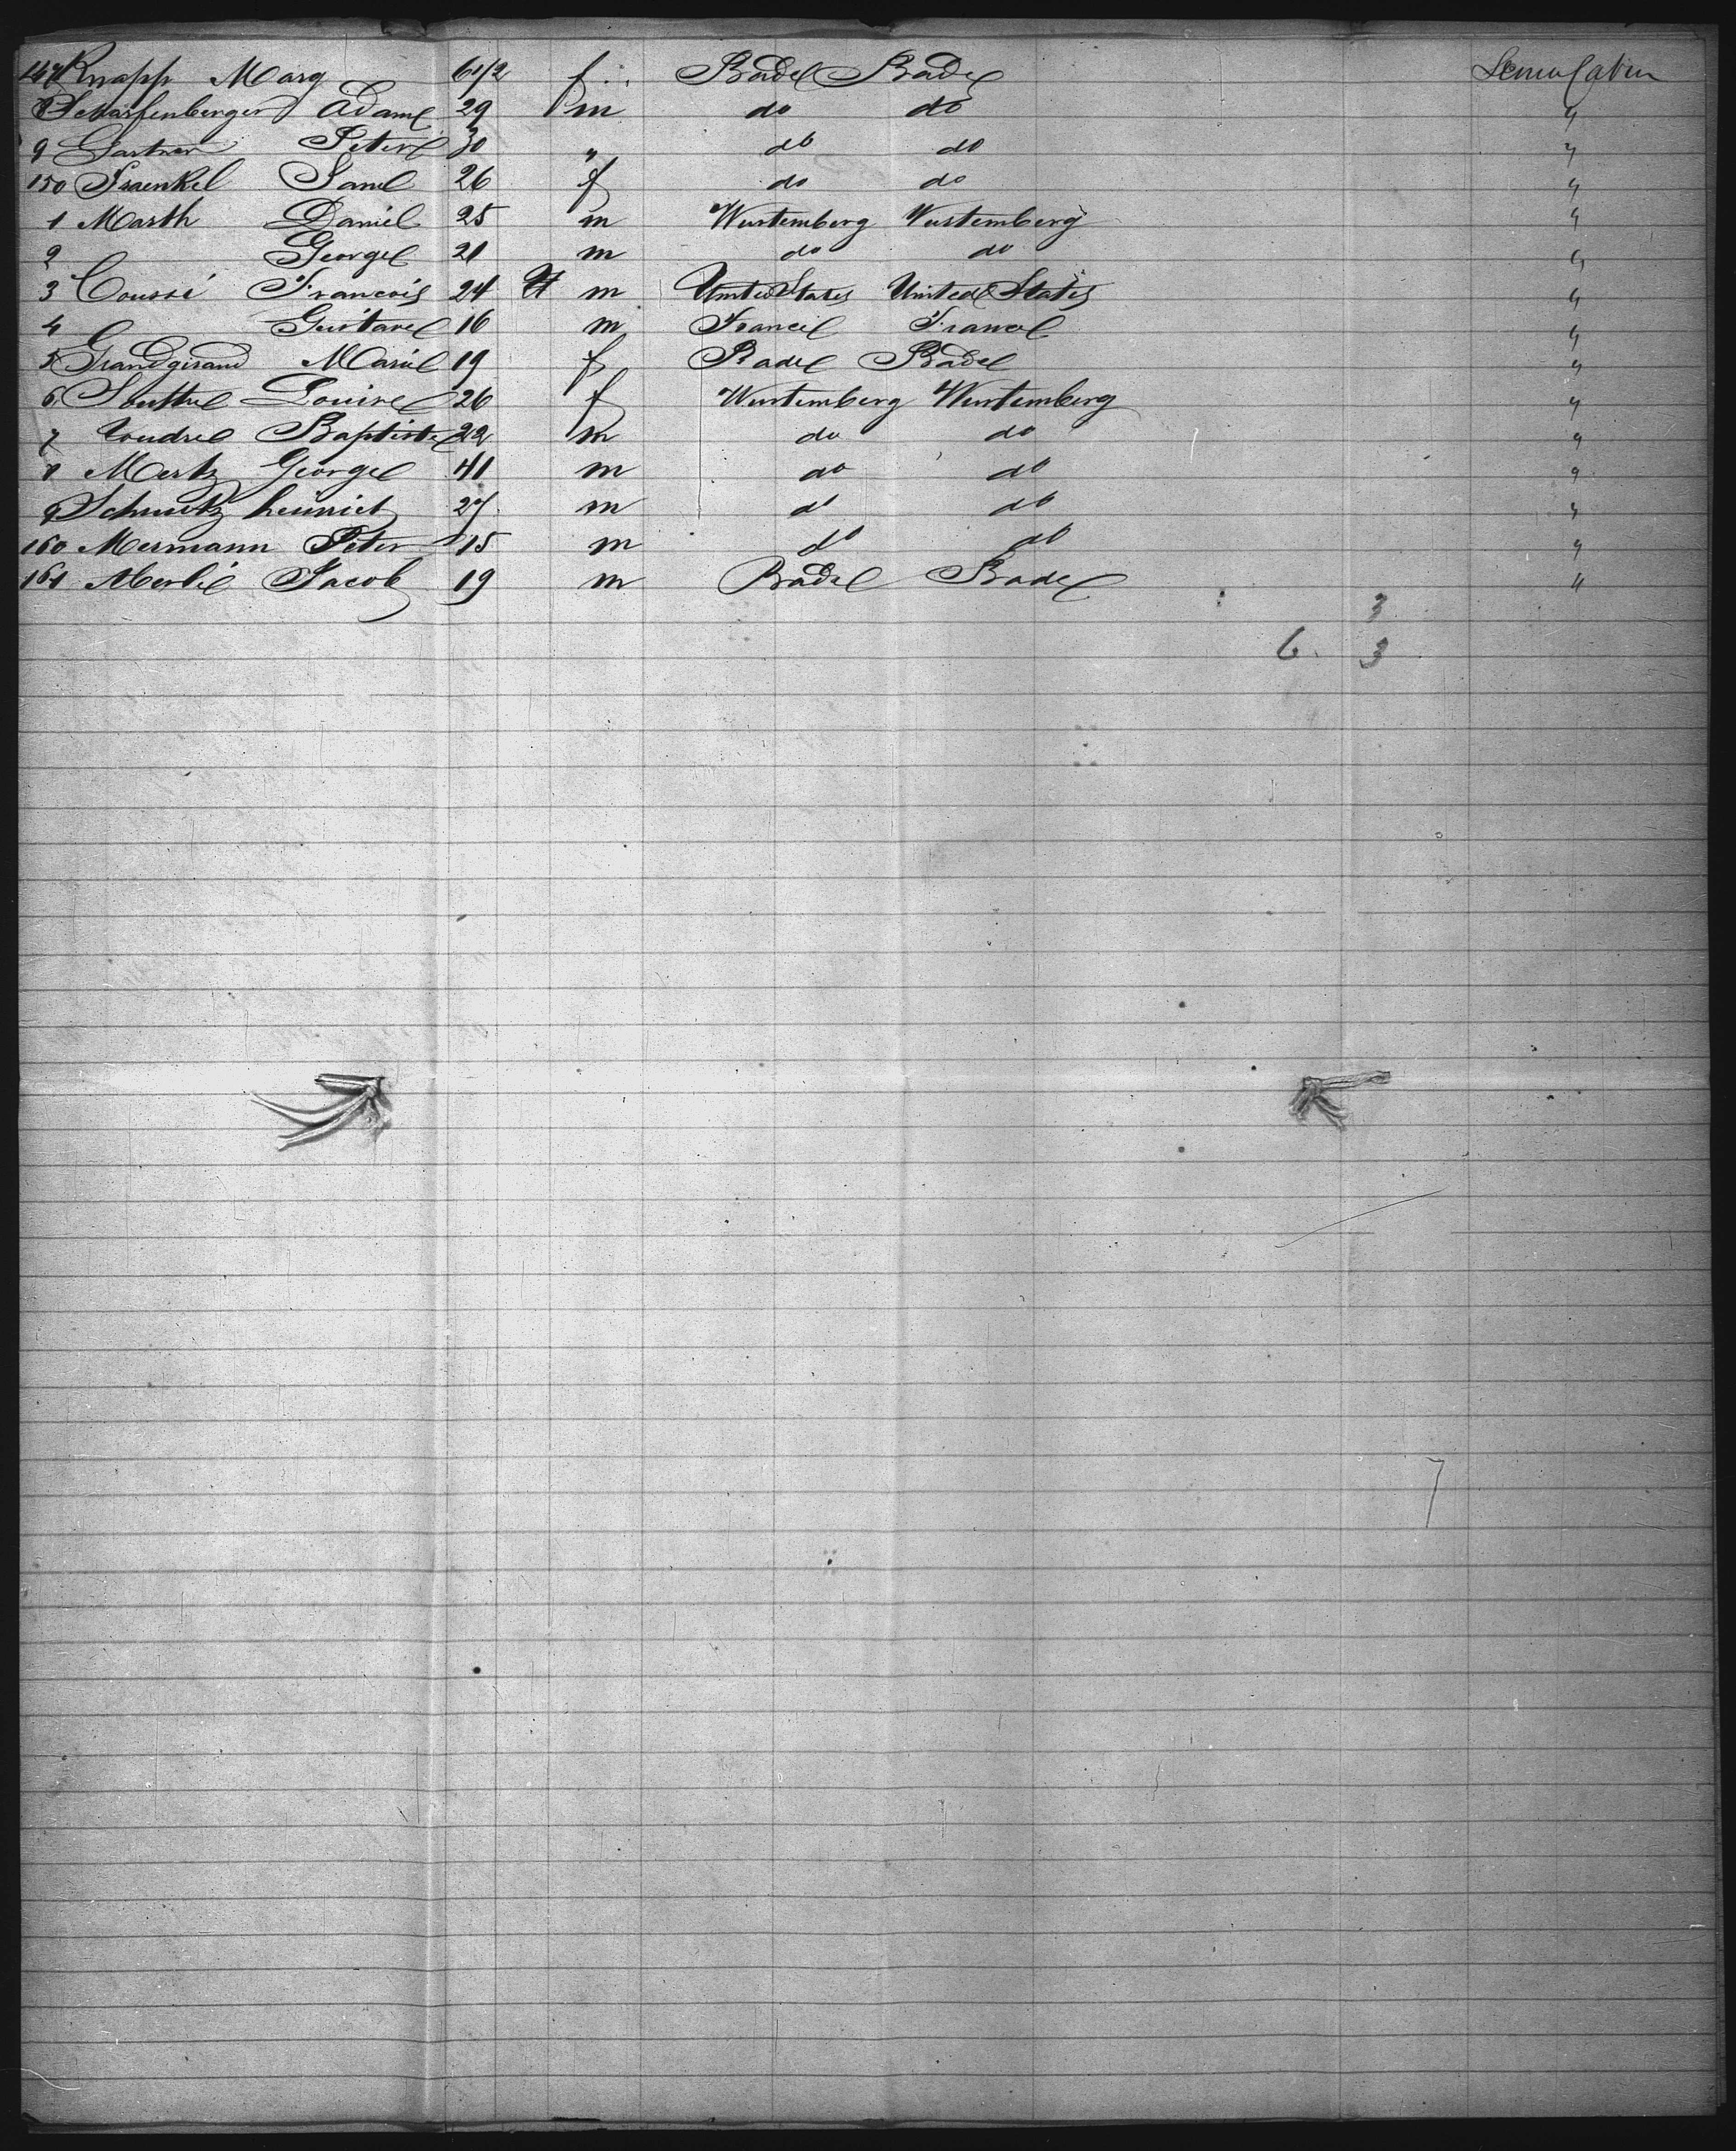 147 Knapp Marg 6 1/2 f Bade Bade
8 Scharfenberger Adam 29 m do do
9 Gartner Peter 30 " do do
150 Fraenkel 26 f do do "
1 Marth Daniel 25 m Wurtemberg Wurtemberg "
2 George 21 m do do "
3 Coussi Francois 24 m United States United States "
4 Gustave 16 m France France "
5 Grandgirard Marie 19 f Bade Bade "
6 Louise 26 f Wurtemberg Wurtemberg "
7 Baptiste 22 m do do "
8 Mertz George 41 m do do "
9 27 m do do "
160 Mermann Peter 15 m do do "
161 Jacob 19 m Bade Bade "
3
6 3